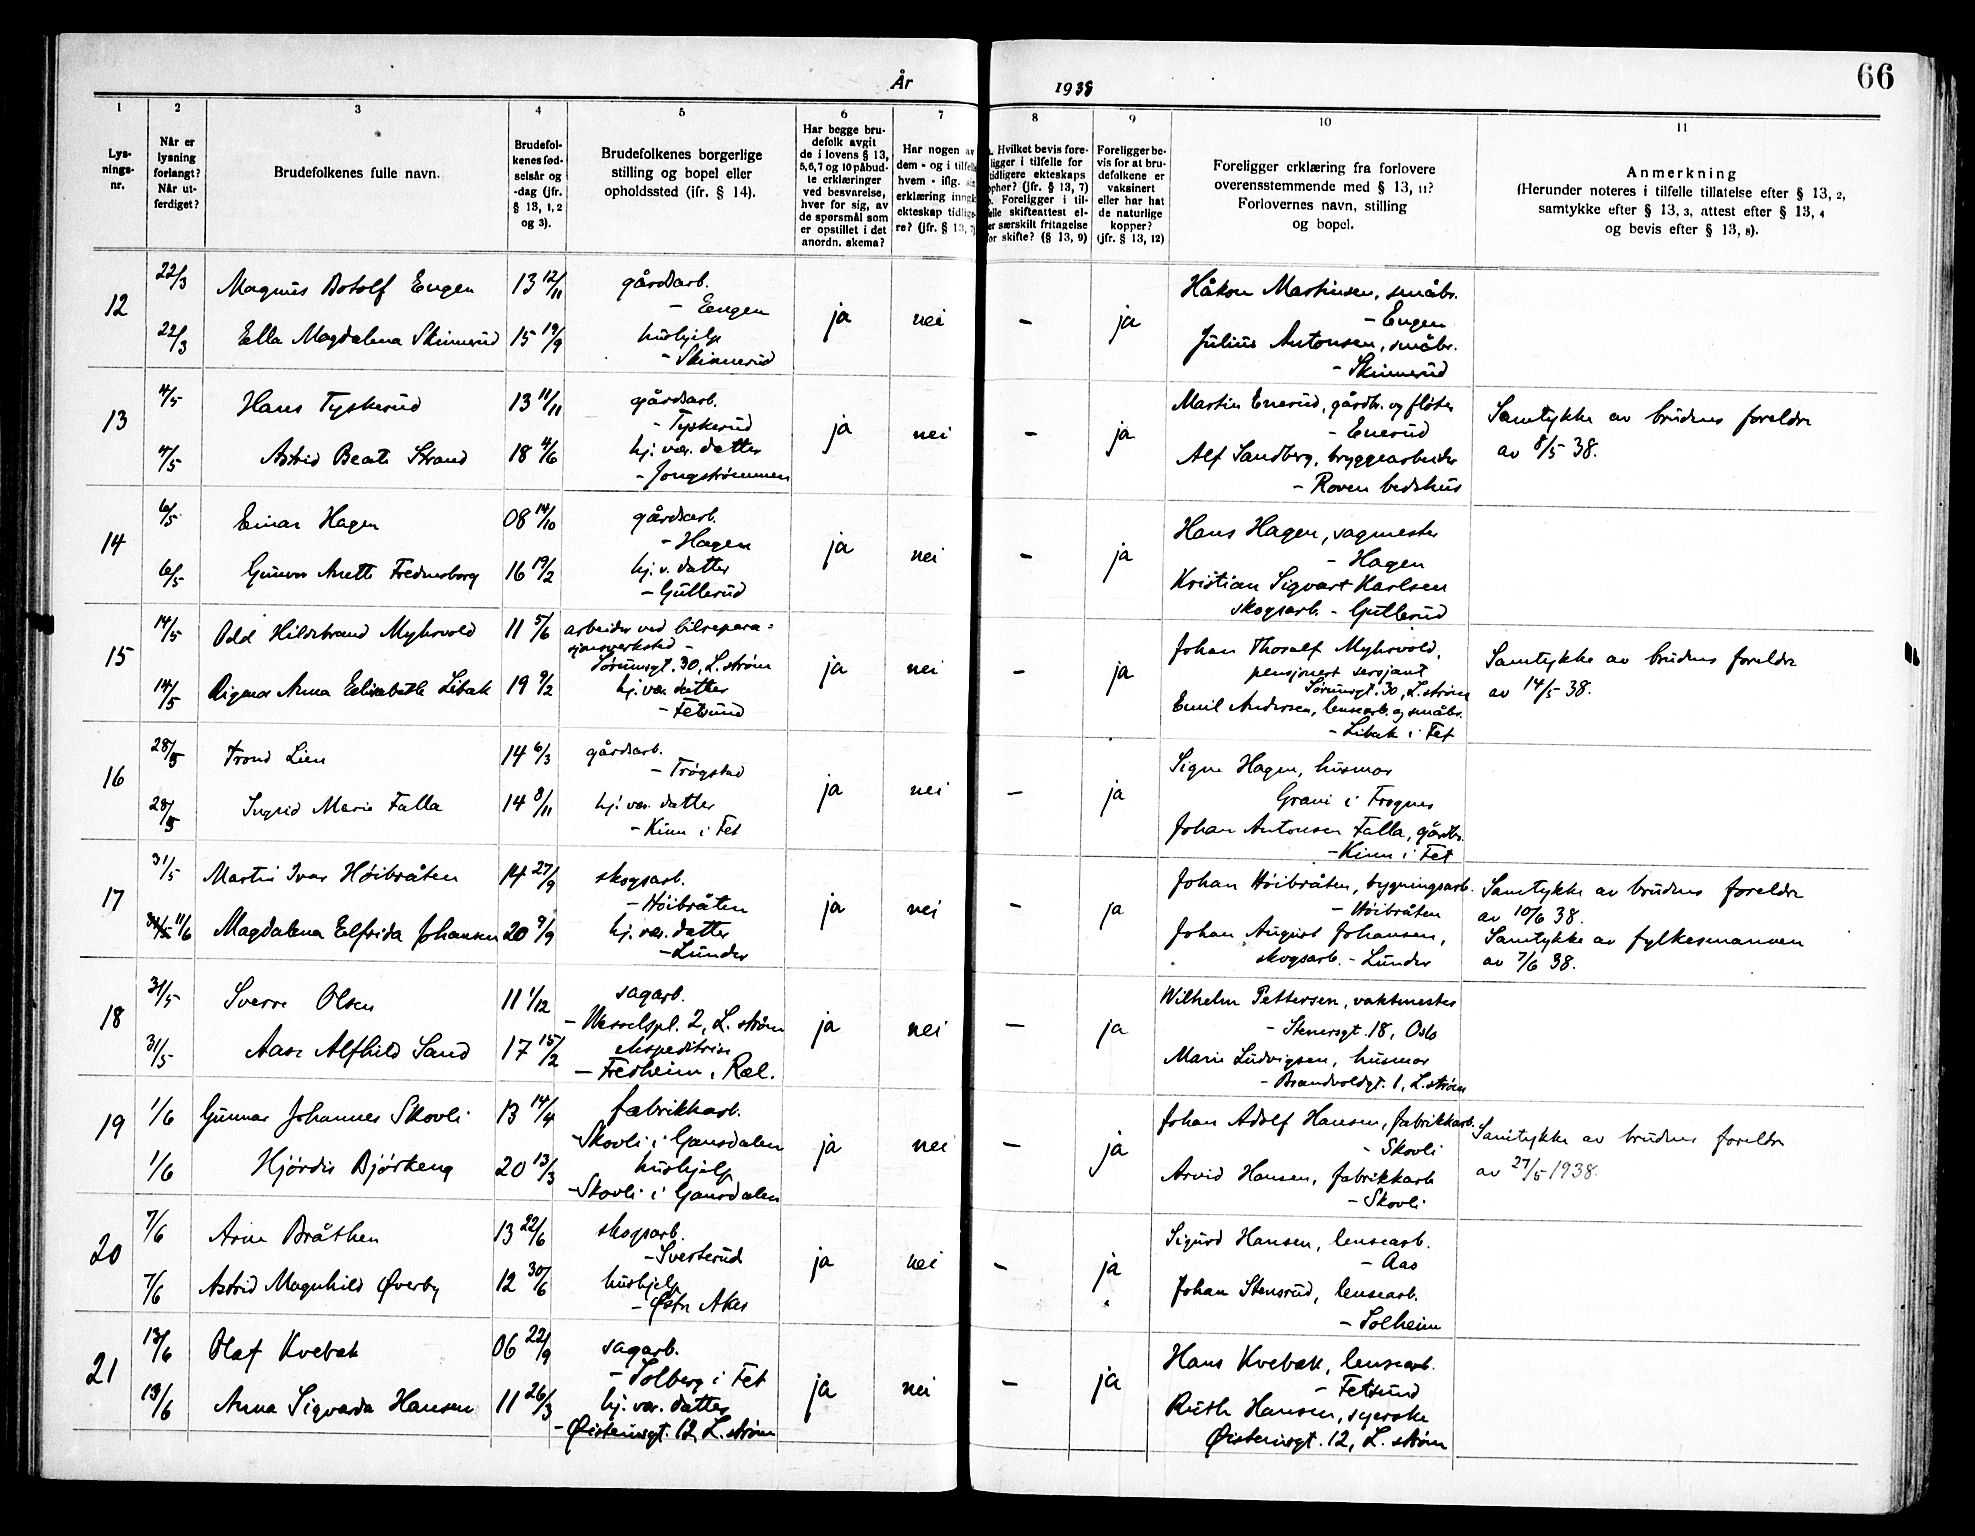 66
År 1938
1 2 3 4 5 6 7 8 9 10 11
Lys-
nings-
nr.
Når er
lysning
forlangt?
Når ut-
ferdiget?
Brudefolkenes fulle navn.
Brudefol-
kenes fød-
selsår og
-dag (jfr.
§ 13, 1, 2
og 3).
Brudefolkenes borgerlige
stilling og bopel eller
opholdssted (jfr. § 14).
Har begge bru-
defolk avgit
de i lovens § 13,
5,6,7 og 10 påbud-
te erklæringer
ved besvarelse,
hver for sig, av
de spørsmål som
er opstillet i det
anordn. skema?
Har nogen av
dem - og i tilfelle
hvem - iflg.
erklæring inngå
ekteskap tidlige-
re? (jfr. § 13, 7)
Hvilket bevis fore-
ligger i tilfelle for
tidligere ekteskaps
ophør? (jfr. § 13, 7)
Foreligger i til-
felle skifteattest el-
er særskilt fritagelse
for skifte? (§ 13, 9)
Foreligger be-
vis for at bru-
defolkene er
vaksinert
eller har hat
de naturlige
kopper?
(jfr. § 13, 12)
Foreligger erklæring fra forlovere
overensstemmende med § 13, 11?
Forlovernes navn, stilling
og bopel.
Anmerkning
(Herunder noteres i tilfelle tillatelse efter § 13, 2,
samtykke efter § 13, 3, attest efter § 13, 4
og bevis efter § 13, 8).
12
22/3 Magnus Botolf Engen 13 12/11 gårdsarb.
- Engen
22/3 Ella Magdalena Skinnerud 15 19/9 hushjelp
- Skinnerud
ja nei - ja
Håkon Martinsen, småbr.
- Engen
Julius Antonsen, småbr.
- Skinnerud
13
4/5 Hans Tyskerud 13 11/11 gårdsarb.
- Tyskerud
4/5 Astrid Beate Strand 18 4/6 hj. vær. datter
- Jongstrømmen
ja nei - ja
Martin Enerud, gårdbr. og fløter
- Enerud
Alf Sandberg, bryggearbeider
- Roven bedehus
Samtykke av brudens foreldre
av 8/5 38.
14
6/5 Einar Hagen 08 14/10 gårdsarb.
- Hagen
6/5 Gunvor Anette Fredensborg 16 19/2 hj. v. datter
- Gullerud
ja nei - ja
Hans Hagen, sagmester
- Hagen
Kristian Sigvart Karlsen
skogsarb. - Gullerud
15
14/5 Odd Hildebrand Myhrvold 11 5/6 arbeider ved bilrepara=
sjonsverksted -
Sørumsgt. 30, L.strøm
14/5 Digmor Anna Elisabeth Libak 19 9/2 hj. vær. datter
- Fetsund
ja nei - ja
Johan Thoralf Myhrvold,
pensjonert sersjant
Sørumsgt. 30, L.strøm
Emil Andersen, lensearb. og småbr.
- Libak i Fet
Samtykke av brudens foreldre
av 14/5 38.
16
28/5 Trond Lien 14 6/3 gårdsarb.
- Trøgstad
28/5 Ingrid Marie Falla 14 8/11 hj. vær. datter
- Kinn i Fet
ja nei - ja
Signe Hagen, husmor
Grani i Trøgnes
Johan Antonsen Falla, gårdbr.
- Kinn i Fet
17
31/5 Martin Ivar Høibråten 14 27/9 skogsarb.
- Høibråten
31/5 11/6 Magdalena Elfrida Johansen 20 9/9 hj. vær. datter
- Lunder
ja nei - ja
Johan Høibråten, bygningsarb.
- Høibråten
Johan August Johansen,
skogsarb. - Lunder
Samtykke av brudens foreldre
av 10/6 38.
Samtykke av fylkesmannen
av 7/6 38.
18
31/5 Sverre Olsen 11 1/12 sagarb.
- Wesselspl. 2, L. strøm
31/5 Aase Alfhild Sand 17 15/2 ekspeditrise
- Fredheim, Ræl.
ja nei - ja
Wilhelm Pettersen, vaktmester
- Stenersgt. 18, Oslo
Marie Ludvigsen, husmor
- Brandvoldgt. 1, L.strøm
19
1/6 Gunnar Johannes Skovli 13 14/4 fabrikkarb.
- Skovli i Gansdalen
1/6 Hjørdis Bjørkeng 20 13/3 hushjelp
- Skovli i Gansdalen
ja nei - ja
Johan Adolf Hansen, fabrikkarb.
- Skovli
Arvid Hansen, fabrikkarb
- Skovli
Samtykke av brudens foreldre
av 27/5 1938.
20
7/6 Arne Bråthen 13 22/6 skogsarb.
- Sverterud
7/6 Astrid Magnhild Øverby 12 30/6 hushjelp
- Østre Aker
ja nei - ja
Sigurd Hansen, lensearb.
- Aas
Johan Stensrud, lensearb.
- Solheim
21
13/6 Olaf Kvebæk 06 22/9 sagarb.
- Solberg i Fet
13/6 Anna Sigvarda Hansen 11 26/3 hj. vær. datter
- Øisteinsgt. 12, L. strøm
ja nei - ja
Hans Kvebæk, lensearb.
- Fetsund
Ruth Hansen, syerske
Øisteinsgt. 12, L. strøm